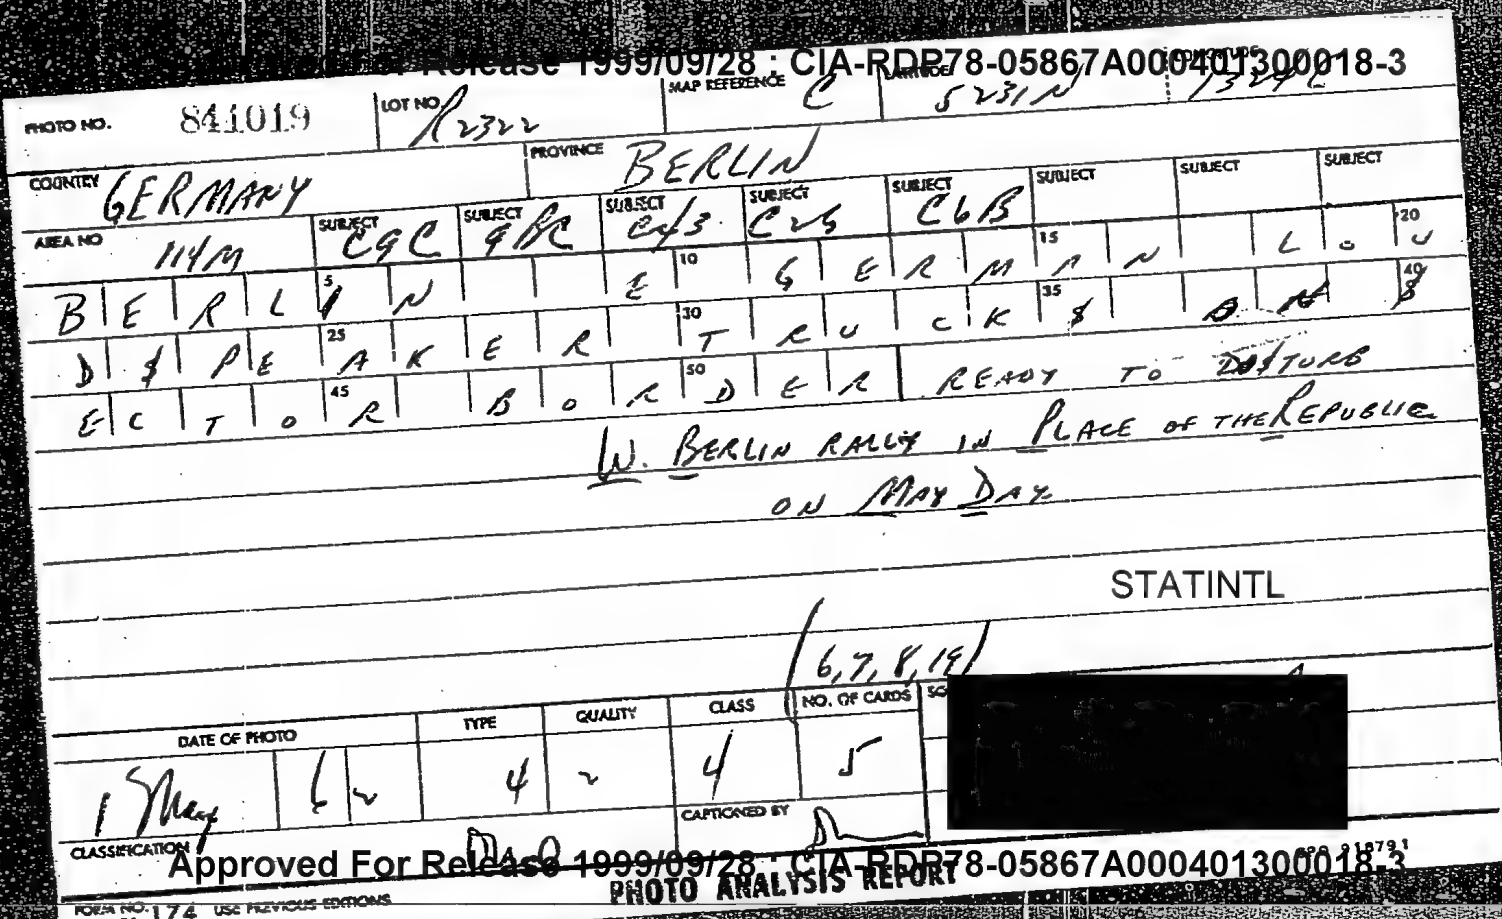 Release 1999/09/28 : CIA-RDP78-05867A000401300018-3
PHOTO NO. 841019 LOT NO R2322 MAP REFERENCE C LATITUDE 5231N LONGITUDE
COUNTRY GERMANY PROVINCE BERLIN
AREA NO 114M SUBJECT C9C SUBJECT 9BC SUBJECT SUBJECT SUBJECT C6B SUBJECT SUBJECT SUBJECT
BERL 5 IN E 10 GERM 15 AN LO 20 U
D$PE 25 AKER 30 TRUCK 35 $ ON 40 $
ECTO 45 R BOR 50 DER READY TO DISTURB
W. BERLIN RALLY IN PLACE OF THE REPUBLIC
ON MAY DAY
STATINTL
(6,7,8,19)
DATE OF PHOTO TYPE QUALITY CLASS NO. OF CARDS
1 May 62 4 2 4 5
CAPTIONED BY
CLASSIFICATION
Approved For Release 1999/09/28 : CIA-RDP78-05867A000401300018-3
PHOTO ANALYSIS REPORT
FORM NO. 174 USE PREVIOUS EDITIONS